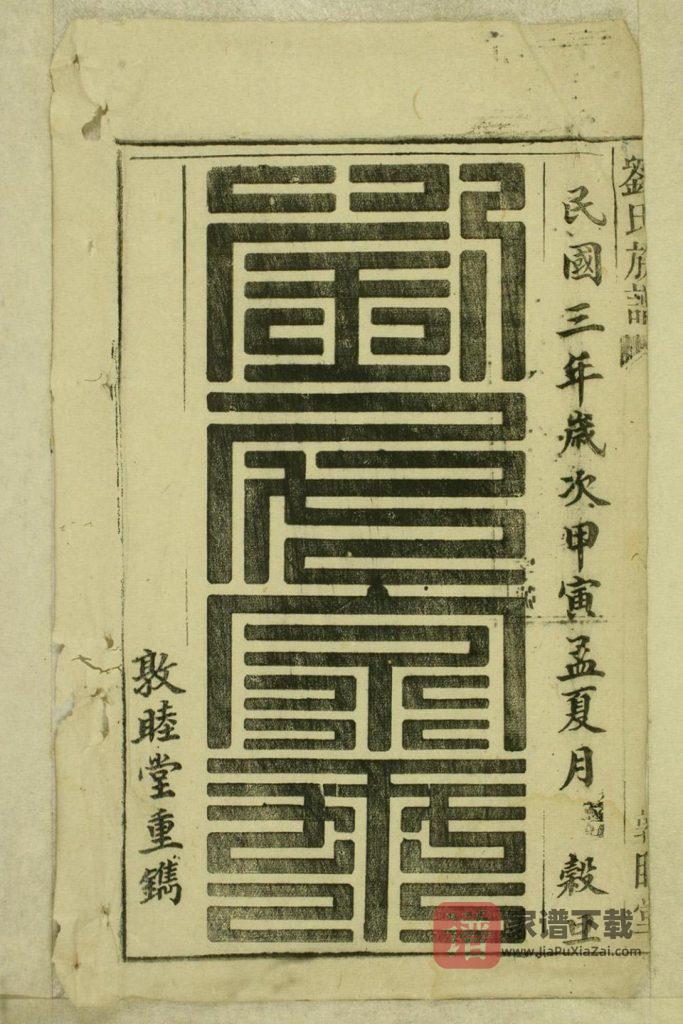 劉氏族譜
敦睦堂
民國三年歲次甲寅孟夏月 穀旦
劉氏家乘
敦睦堂重鐫
家谱下载
www.JiaPuXiaZai.com